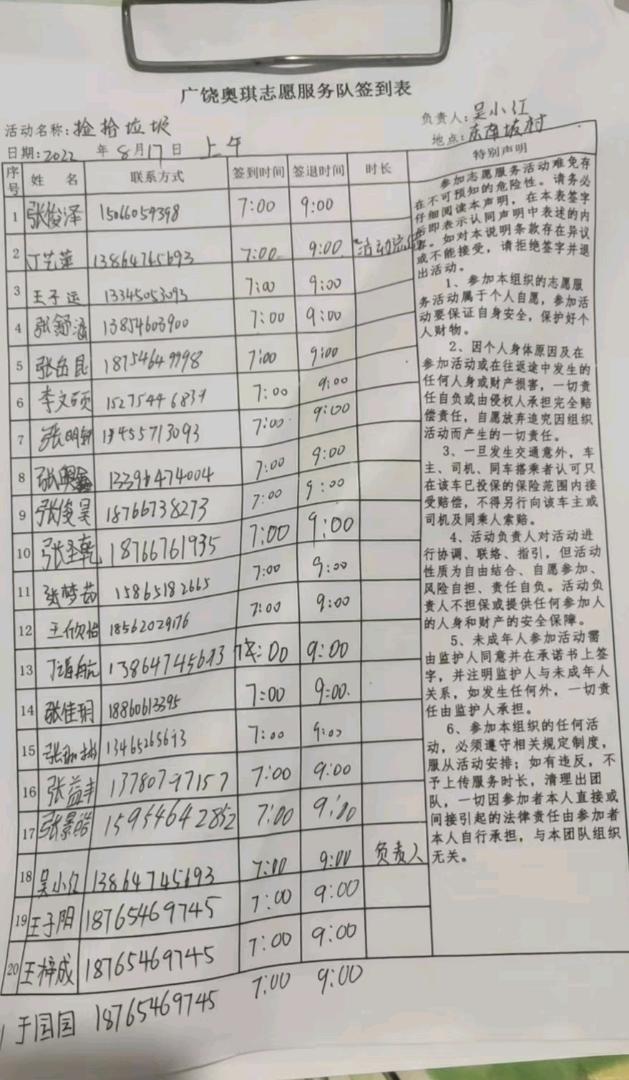 广饶奥琪志愿服务队签到表
活动名称：捡拾垃圾 负责人：吴小红
日期：2022 年 8 月 17 日 上午 地点：
序号 姓 名 联系方式 签到时间 签退时间 时长 特别声明
1 张俊泽 15066059398 7:00 9:00
2 丁艺萍 13864765693 7:00 9:00
3 王子远 13345053093 7:00 9:00
4 张舒涵 13854603900 7:00 9:00
5 张岳昆 7:00 9:00
6 李文硕 7:00 9:00
7 张明 7:00 9:00
8 13396474004 7:00 9:00
9 张俊昊 18766738273 7:00 9:00
10 张圣乾 18766761935 7:00 9:00
11 张梦茹 15865182665 7:00 9:00
12 王欣怡 18562029176 7:00 9:00
13 :00 9:00
14 张佳玥 18860613395 7:00 9:00
15 7:00 9:00
16 张益丰 13780797157 7:00 9:00
17 张景皓 15954642852 7:00 9:00
18 吴小红 13864745693 7:00 9:00 负责人
19 王子阳 18765469745 7:00 9:00
20 王梓成 18765469745 7:00 9:00
于国国 18765469745 7:00 9:00
参加志愿服务活动难免存
在不可预知的危险性。请务必
仔细阅读本声明，在本表签字
即表示认同声明中表述的内
容。如对本说明条款存在异议
或不能接受，请拒绝签字并退
出活动。
1、参加本组织的志愿服
务活动属于个人自愿，参加活
动要保证自身安全，保护好个
人财物。
2、因个人身体原因及在
参加活动或在往返途中发生的
任何人身或财产损害，一切责
任自负或由侵权人承担完全赔
偿责任，自愿放弃追究因组织
活动而产生的一切责任。
3、一旦发生交通意外，车
主、司机、同车搭乘者认可只
在该车已投保的保险范围内接
受赔偿，不得另行向该车主或
司机及同乘人索赔。
4、活动负责人对活动进
行协调、联络、指引，但活动
性质为自由结合、自愿参加、
风险自担、责任自负。活动负
责人不担保或提供任何参加人
的人身和财产的安全保障。
5、未成年人参加活动需
由监护人同意并在承诺书上签
字，并注明监护人与未成年人
关系，如发生任何外，一切责
任由监护人承担。
6、参加本组织的任何活
动，必须遵守相关规定制度，
服从活动安排；如有违反，不
予上传服务时长，清理出团
队，一切因参加者本人直接或
间接引起的法律责任由参加者
本人自行承担，与本团队组织
无关。